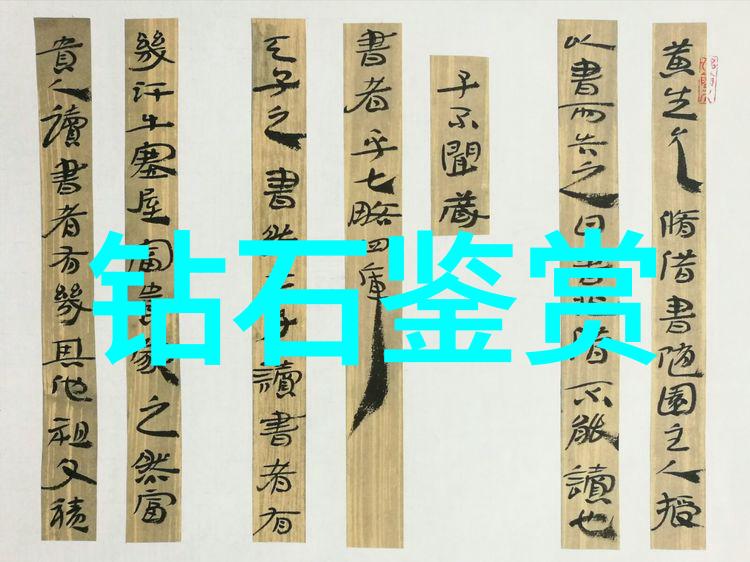 黄生允脩借書随園主人授
以書而告之曰書非借不能讀也
子不聞藏
書者乎七略四庫
天子之書然天子讀書者有
幾汗牛塞屋富貴家之然富
貴人讀書者有幾其他祖父積
钻石鉴赏